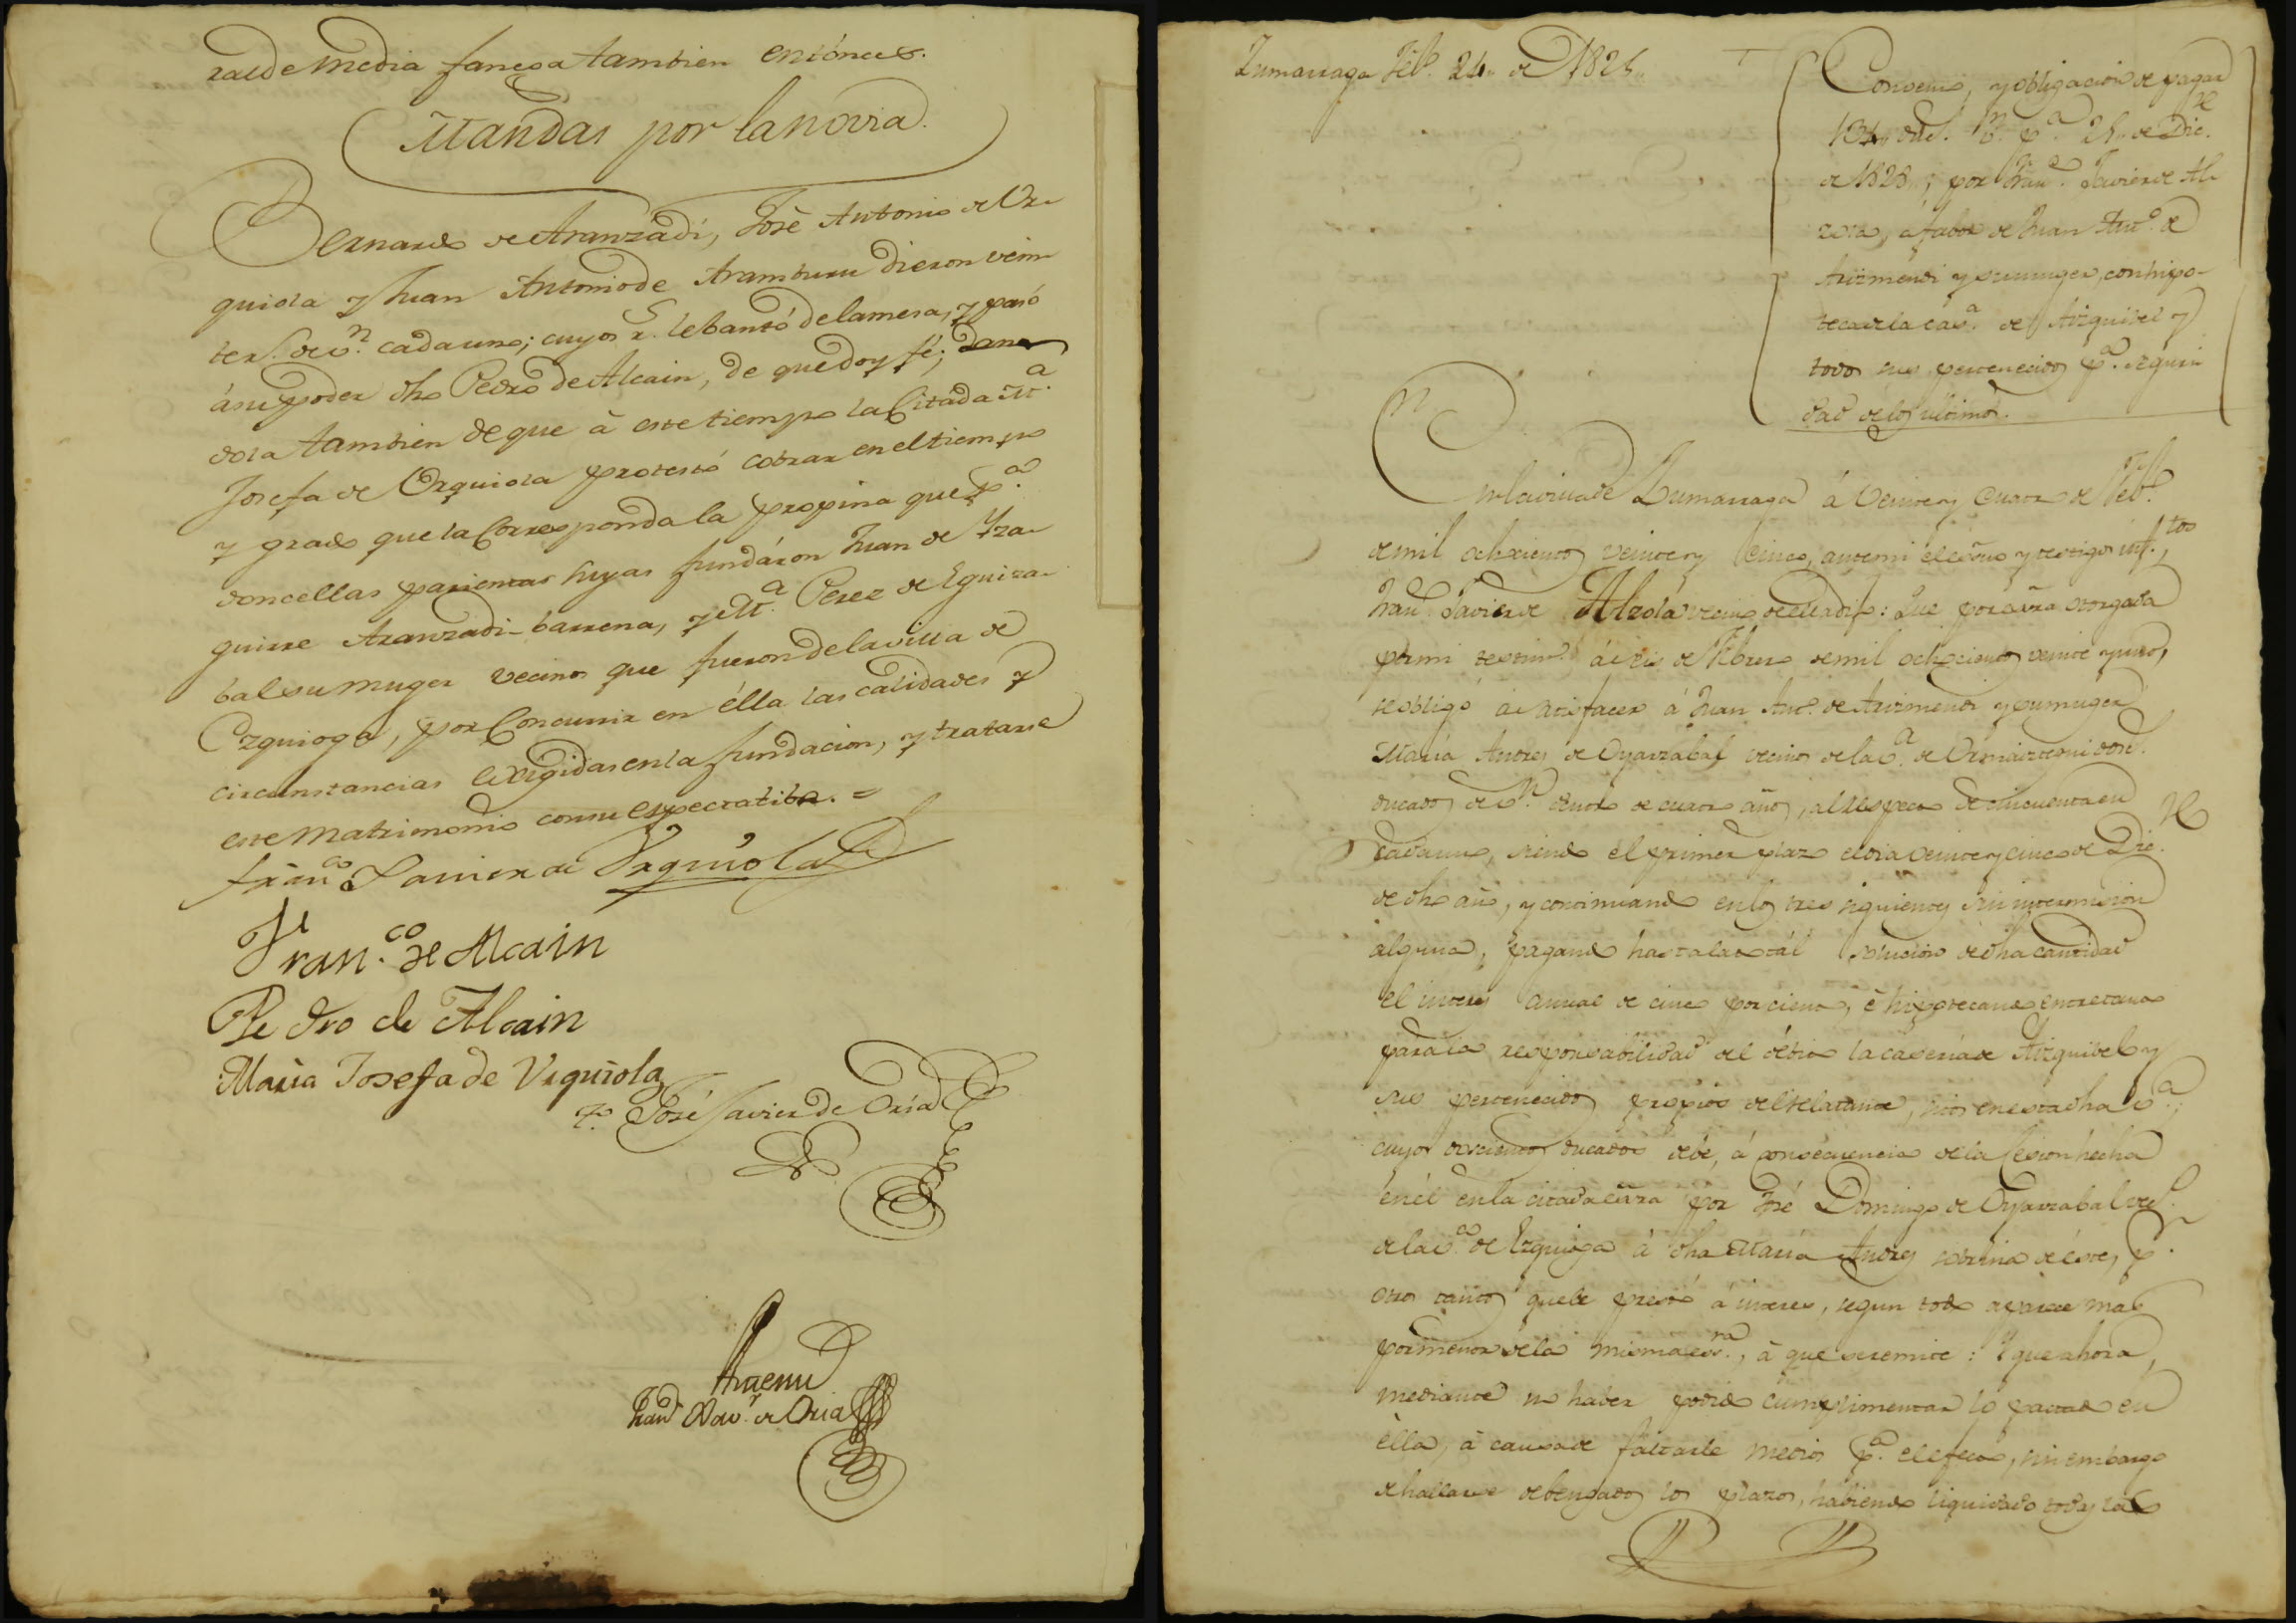 ras de media fanega tambien entónces.
Mandas por la novia.
Bernardo de Aranzadi, José Antonio de Ur-
quiola y Juan Antonio de Aramburu dieron vein
te r.s de v.n cada uno; cuyos r.s lebantó de la mesa, y pasó
á su poder dho Pedro de Alcain, de que doy fé;
dola tambien de que à este tiempo la Citada M.a
Josefa de Urquiola protestó cobrar en el tiempo
y grado que la Corresponda la propina que p.a
doncellas parientas suyas fundáron Juan de Yza-
guirre Aranzadi-barrena, y M.a Perez de Eguiza-
bal su muger vecinos que fueron de la villa de
Ezquioga, por Concurrir en élla las calidades y
circunstancias exîgidas en la fundacion, y tratarse
este matrimonio con su espectatiba. =
Fran.co Xavier de Urquiola
Fran.co de Alcain
Pedro de Alcain
Maria Josefa de Urquiola
t.o José Javier de Oria
Antemi
Fran.co Xav.r de Oria
Zumarraga Feb.o 24,, de 1825,,
Convenio, y obligacion de pagar
134,, duc.s v.n p.a 25,, de Dic.re
de 1825,, por Fran.co Javier de Al-
zola, á fabor de Juan Ant.o de
Arizmendi y su muger, con hipo-
teca de la cas.a de Aizquibel y
todos sus pertenecidos p.a seguri-
dad de los ultimos.
En la villa de Zumarraga á veinte y cuatro de Feb.o
de mil ochocientos veinte y cinco, ante mi el esno y testigos inf.tos
Fran.co Javier de Alzola vecino de ella dijo: Que por esra otorgada
por mi testim.o á seis de Febrero de mil ochocientos veinte y uno,
se obligó a satisfacer á Juan Ant.o de Arizmendi y su muger
Maria Andres de Oyarzabal vecinos de la v.a de Ormaiztegui dosc.s
ducados de v.n dentro de cuatro años, al respecto de cincuenta en
cada uno, siendo el primer plazo el dia veinte y cinco de Dic.re
de dho año, y continuando en los tres siguientes sin intermision
alguna, pagando hasta la total solucion de dha cantidad
el interes anual de cinco por ciento, é hipotecando entretanto
para la responsabilidad del débito la caseria de Aizquibel y
sus pertenecidos propios del relatante, sitos en esta dha v.a;
cuyos doscientos ducados debe, á consecuencia de la Cesion hecha
en él en la citada esra por José Domingo de Oyarzabal vec.o
de la v.a de Ezquioga á dha Maria Andres sobrina de éste, p.r
otros tantos que le prestó á interes, segun todo aparece mas
por menor de la misma esc.ra, à que se remite: Y que ahora,
mediante no haber podido cumplimentar lo pactado en
élla, à causa de faltarle medios p.a el efecto, sin embargo
de hallarse debengados los plazos, habiendo liquidado todas las